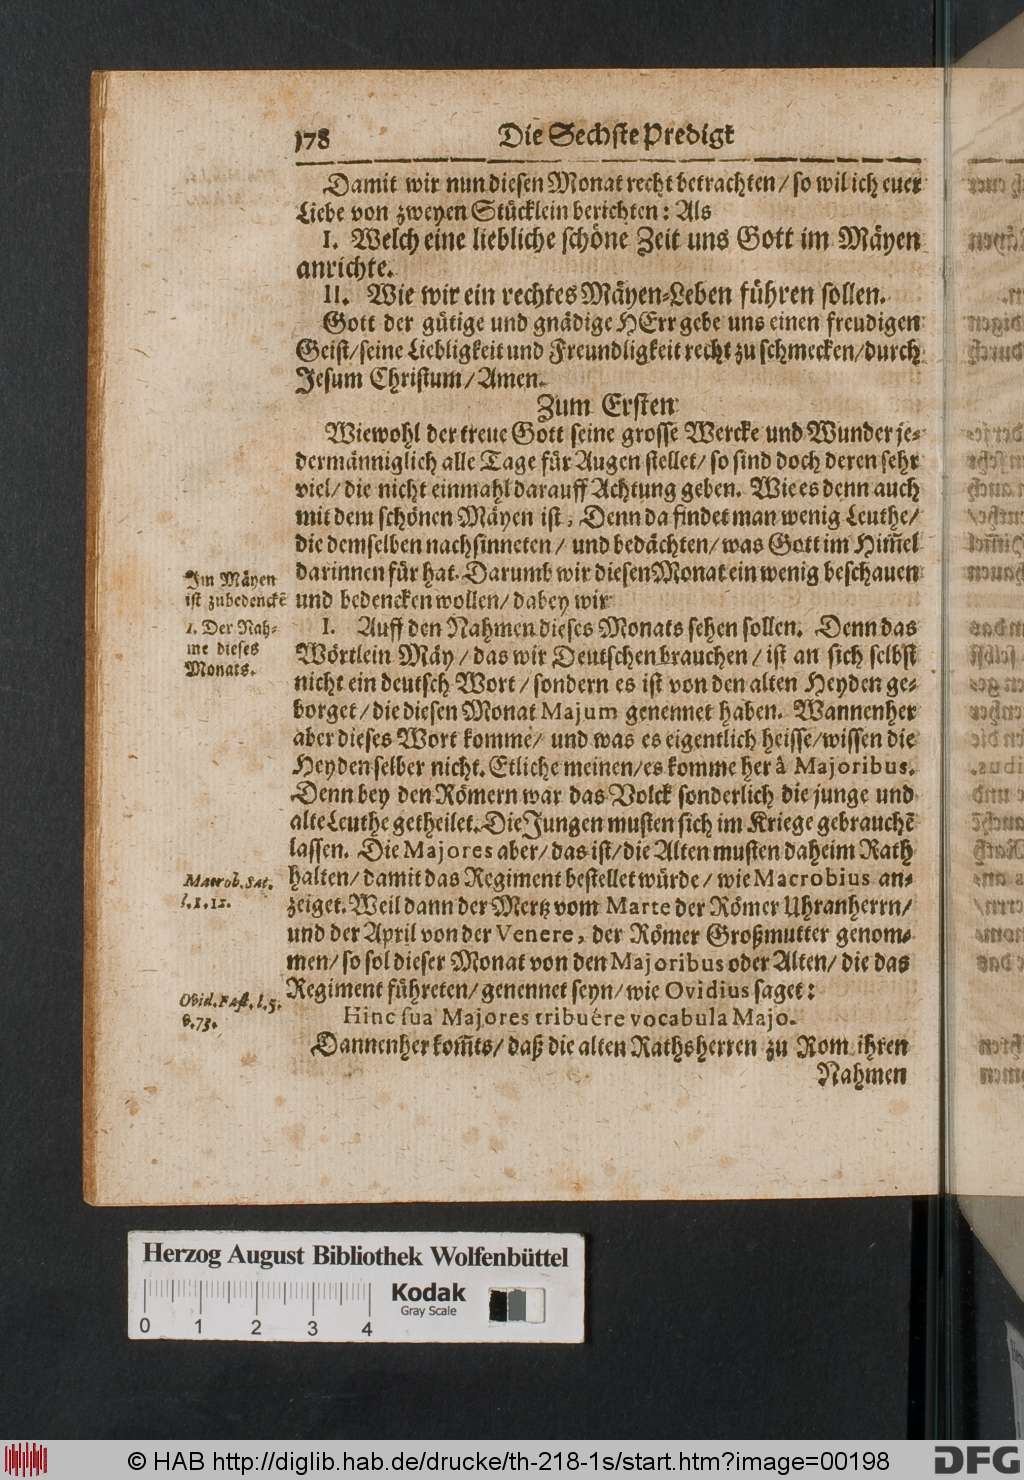 178 Die Sechste Predigt
Damit wir nun diesen Monat recht betrachten / so wil ich euer
Liebe von zweyen Stücklein berichten: Als
I. Welch eine liebliche schöne Zeit uns Gott im Mäyen
anrichte.
II. Wie wir ein rechtes Mäyen-Leben führen sollen.
Gott der gütige und gnädige HErr gebe uns einen freudigen
Geist / seine Liebligkeit und Freundligkeit recht zu schmecken / durch
Jesum Christum / Amen.
Zum Ersten
Wiewohl der treue Gott seine grosse Wercke und Wunder je-
dermänniglich alle Tage für Augen stellet / so sind doch deren sehr
viel / die nicht einmahl darauff Achtung geben. Wie es denn auch
mit dem schönen Mäyen ist, Denn da findet man wenig Leuthe /
die demselben nachsinneten / und bedächten / was Gott im Him̃el
darinnen für hat. Darumb wir diesen Monat ein wenig beschauen
und bedencken wollen / dabey wir
Im Mäyen
ist zubedenckẽ
1. Der Nah-
me dieses
Monats.
I. Auff den Nahmen dieses Monats sehen sollen. Denn das
Wörtlein Mäy / das wir Deutschen brauchen / ist an sich selbst
nicht ein deutsch Wort / sondern es ist von den alten Heyden ge-
borget / die diesen Monat Majum genennet haben. Wannenher
aber dieses Wort komme / und was es eigentlich heisse / wissen die
Heyden selber nicht. Etliche meinen / es komme her â Majoribus.
Denn bey den Römern war das Volck sonderlich die junge und
alte Leuthe getheilet. Die Jungen musten sich im Kriege gebrauchẽ
lassen. Die Majores aber / das ist / die Alten musten daheim Rath
halten / damit das Regiment bestellet würde / wie Macrobius an-
zeiget. Weil dann der Mertz vom Marte der Römer Uhranherrn /
und der April von der Venere, der Römer Großmutter genom-
men / so sol dieser Monat von den Majoribus oder Alten / die das
Regiment führeten / genennet seyn / wie Ovidius saget:
Macrob. Sat.
l. 1. 12.
Ovid. Fast. l. 5.
v. 73.
Hinc sua Majores tribuére vocabula Majo.
Dannenher kom̃ts / daß die alten Rathsherren zu Rom ihren
Nahmen
Herzog August Bibliothek Wolfenbüttel
Kodak
Gray Scale
0 1 2 3 4
© HAB http://diglib.hab.de/drucke/th-218-1s/start.htm?image=00198
DFG